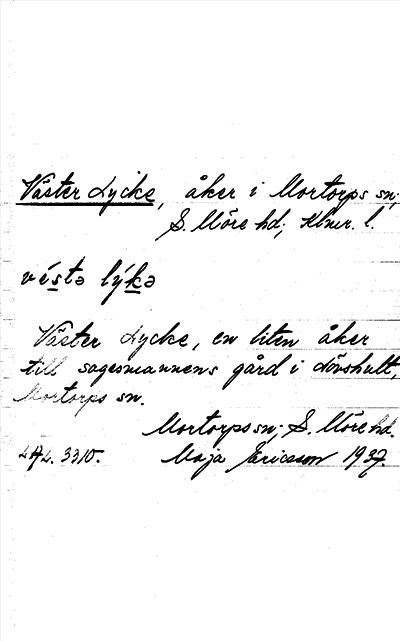 Väster Lycke, åker i Mortorps sn;
S. Möre hd; Klmr. l.
véstə lýkə
Väster Lycke, en liten åker
till sagesmannens gård i Lövshult,
Mortorps sn.
Mortorps sn; S. Möre hd.
LAL. 3310. Maja Ericsson 1937.